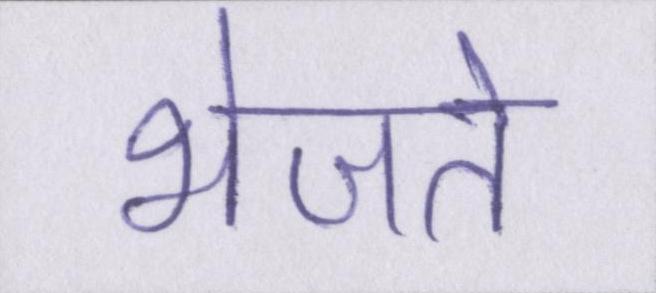 भेजते